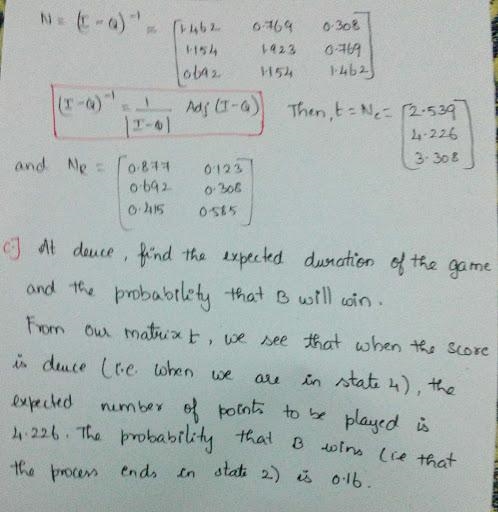 N = (I - Q)⁻¹ = [1.462 0.769 0.308
1.154 1.923 0.769
0.692 1.154 1.462]
(I-Q)⁻¹ = 1/|I-Q| Adj (I-Q) Then, t = Nc = [2.539
4.226
3.308]
and NR = [0.877 0.123
0.692 0.308
0.415 0.585]
c.] At deuce, find the expected duration of the game
and the probability that B will win.
From our matrix t, we see that when the score
is deuce (i.e. when we are in state 4), the
expected number of points to be played is
4.226. The probability that B wins (ie that
the process ends in state 2) is 0.16.